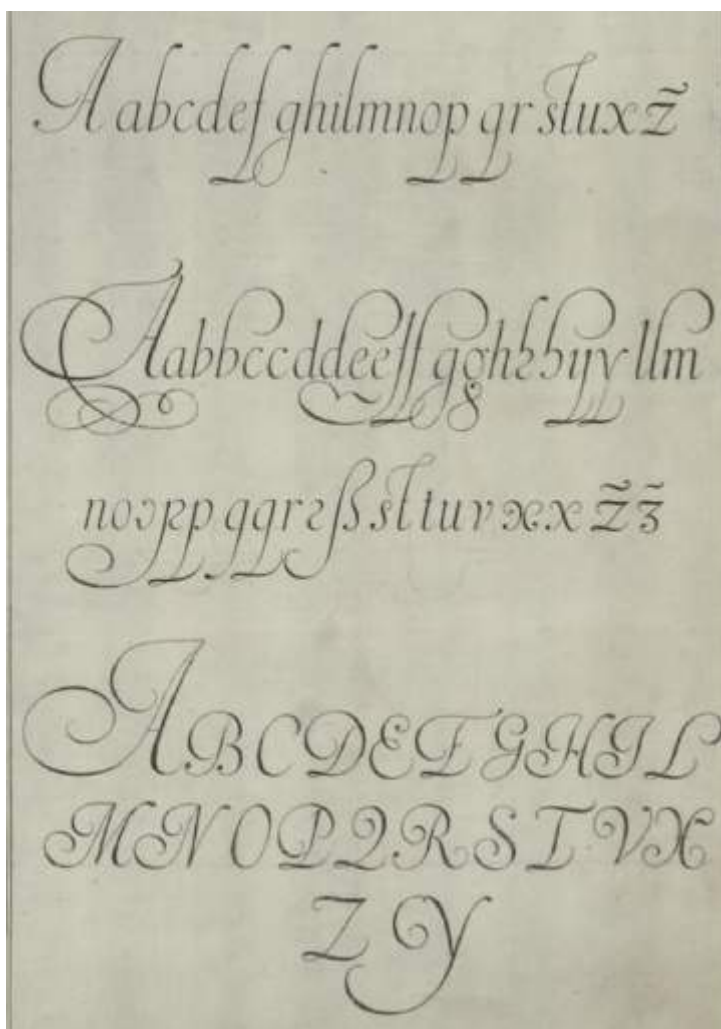 A abcdefghilmnopqrstuxz̃
Aabbccddeeffgghhhijyllm
noɔppqqrrꝛßsttuvxxz̃z̃
ABCDEFGHIL
MNOPQRSTVX
ZY